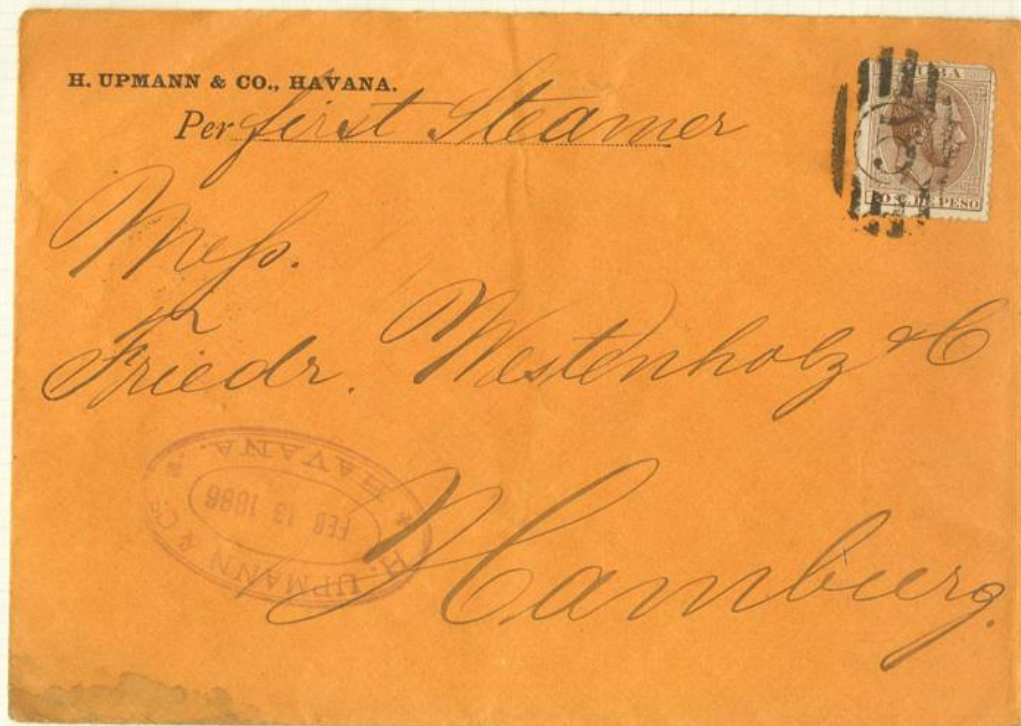 H. UPMANN & CO., HAVANA.
Per first Steamer
CUBA
10 C. DE PESO
Mess.
Friedr. Westenholz & C
Hamburg.
H. UPMANN & Co.
* HAVANA. *
FEB 13 1886